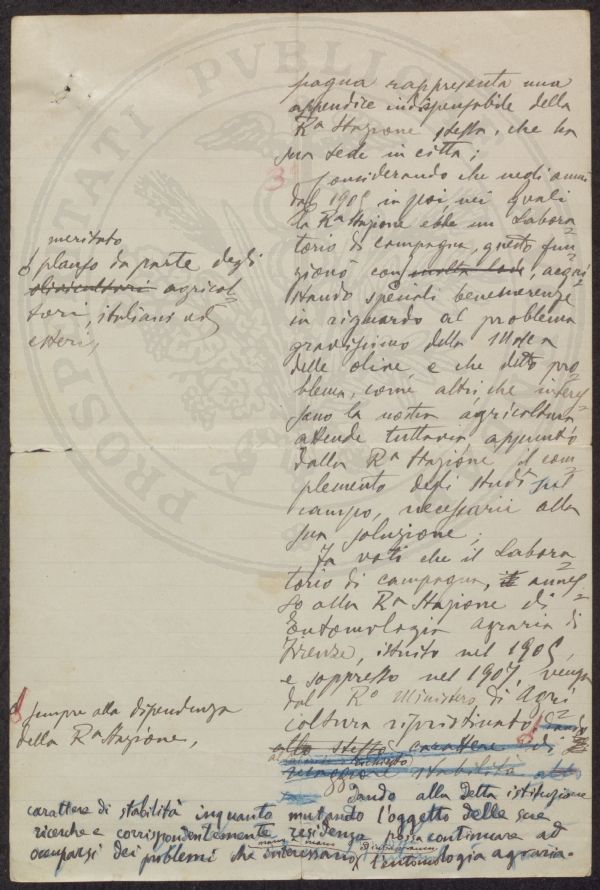 PROSPERITATI PVBLICAE
pagna rappresenta una
appendice indispensabile della
Ra Stazione stessa, che ha
sua sede in città;
3°
Considerando che negli anni
dal 1905 in poi, nei quali
la Ra Stazione ebbe un Labora=
torio di campagna, questo fun=
zionò con molta lode, acqui
stando speciali benemerenze
in riguardo al problema
gravissimo della Mosca
delle olive, e che detto pro
blema, come altri, che interes=
sano la nostra agricoltura
attende tuttavia appunto
dalla Ra Stazione il com=
plemento degli studi sul
campo, necessarii alla
sua soluzione;
Fa voti che il Labora=
torio di campagna, annes=
so alla Ra Stazione di
Entomologia agraria di
Firenze, istituito nel 1905,
e soppresso nel 1907, venga
dal Ro Ministero di Agri
coltura ripristinato,
allo stesso carattere di
richiesto
maggiore stabilità
meritato
plauso da parte degli
olivicultori agricol=
tori, italiani ed
esteri,
sempre alla dipendenza
della Ra Stazione,
Dando alla detta istituzione
carattere di stabilità inquanto mutando l'oggetto delle sue
ricerche e corrispondentemente residenza possa continuare ad
mano a mano
occuparsi dei problemi che interessano l'entomologia agraria.